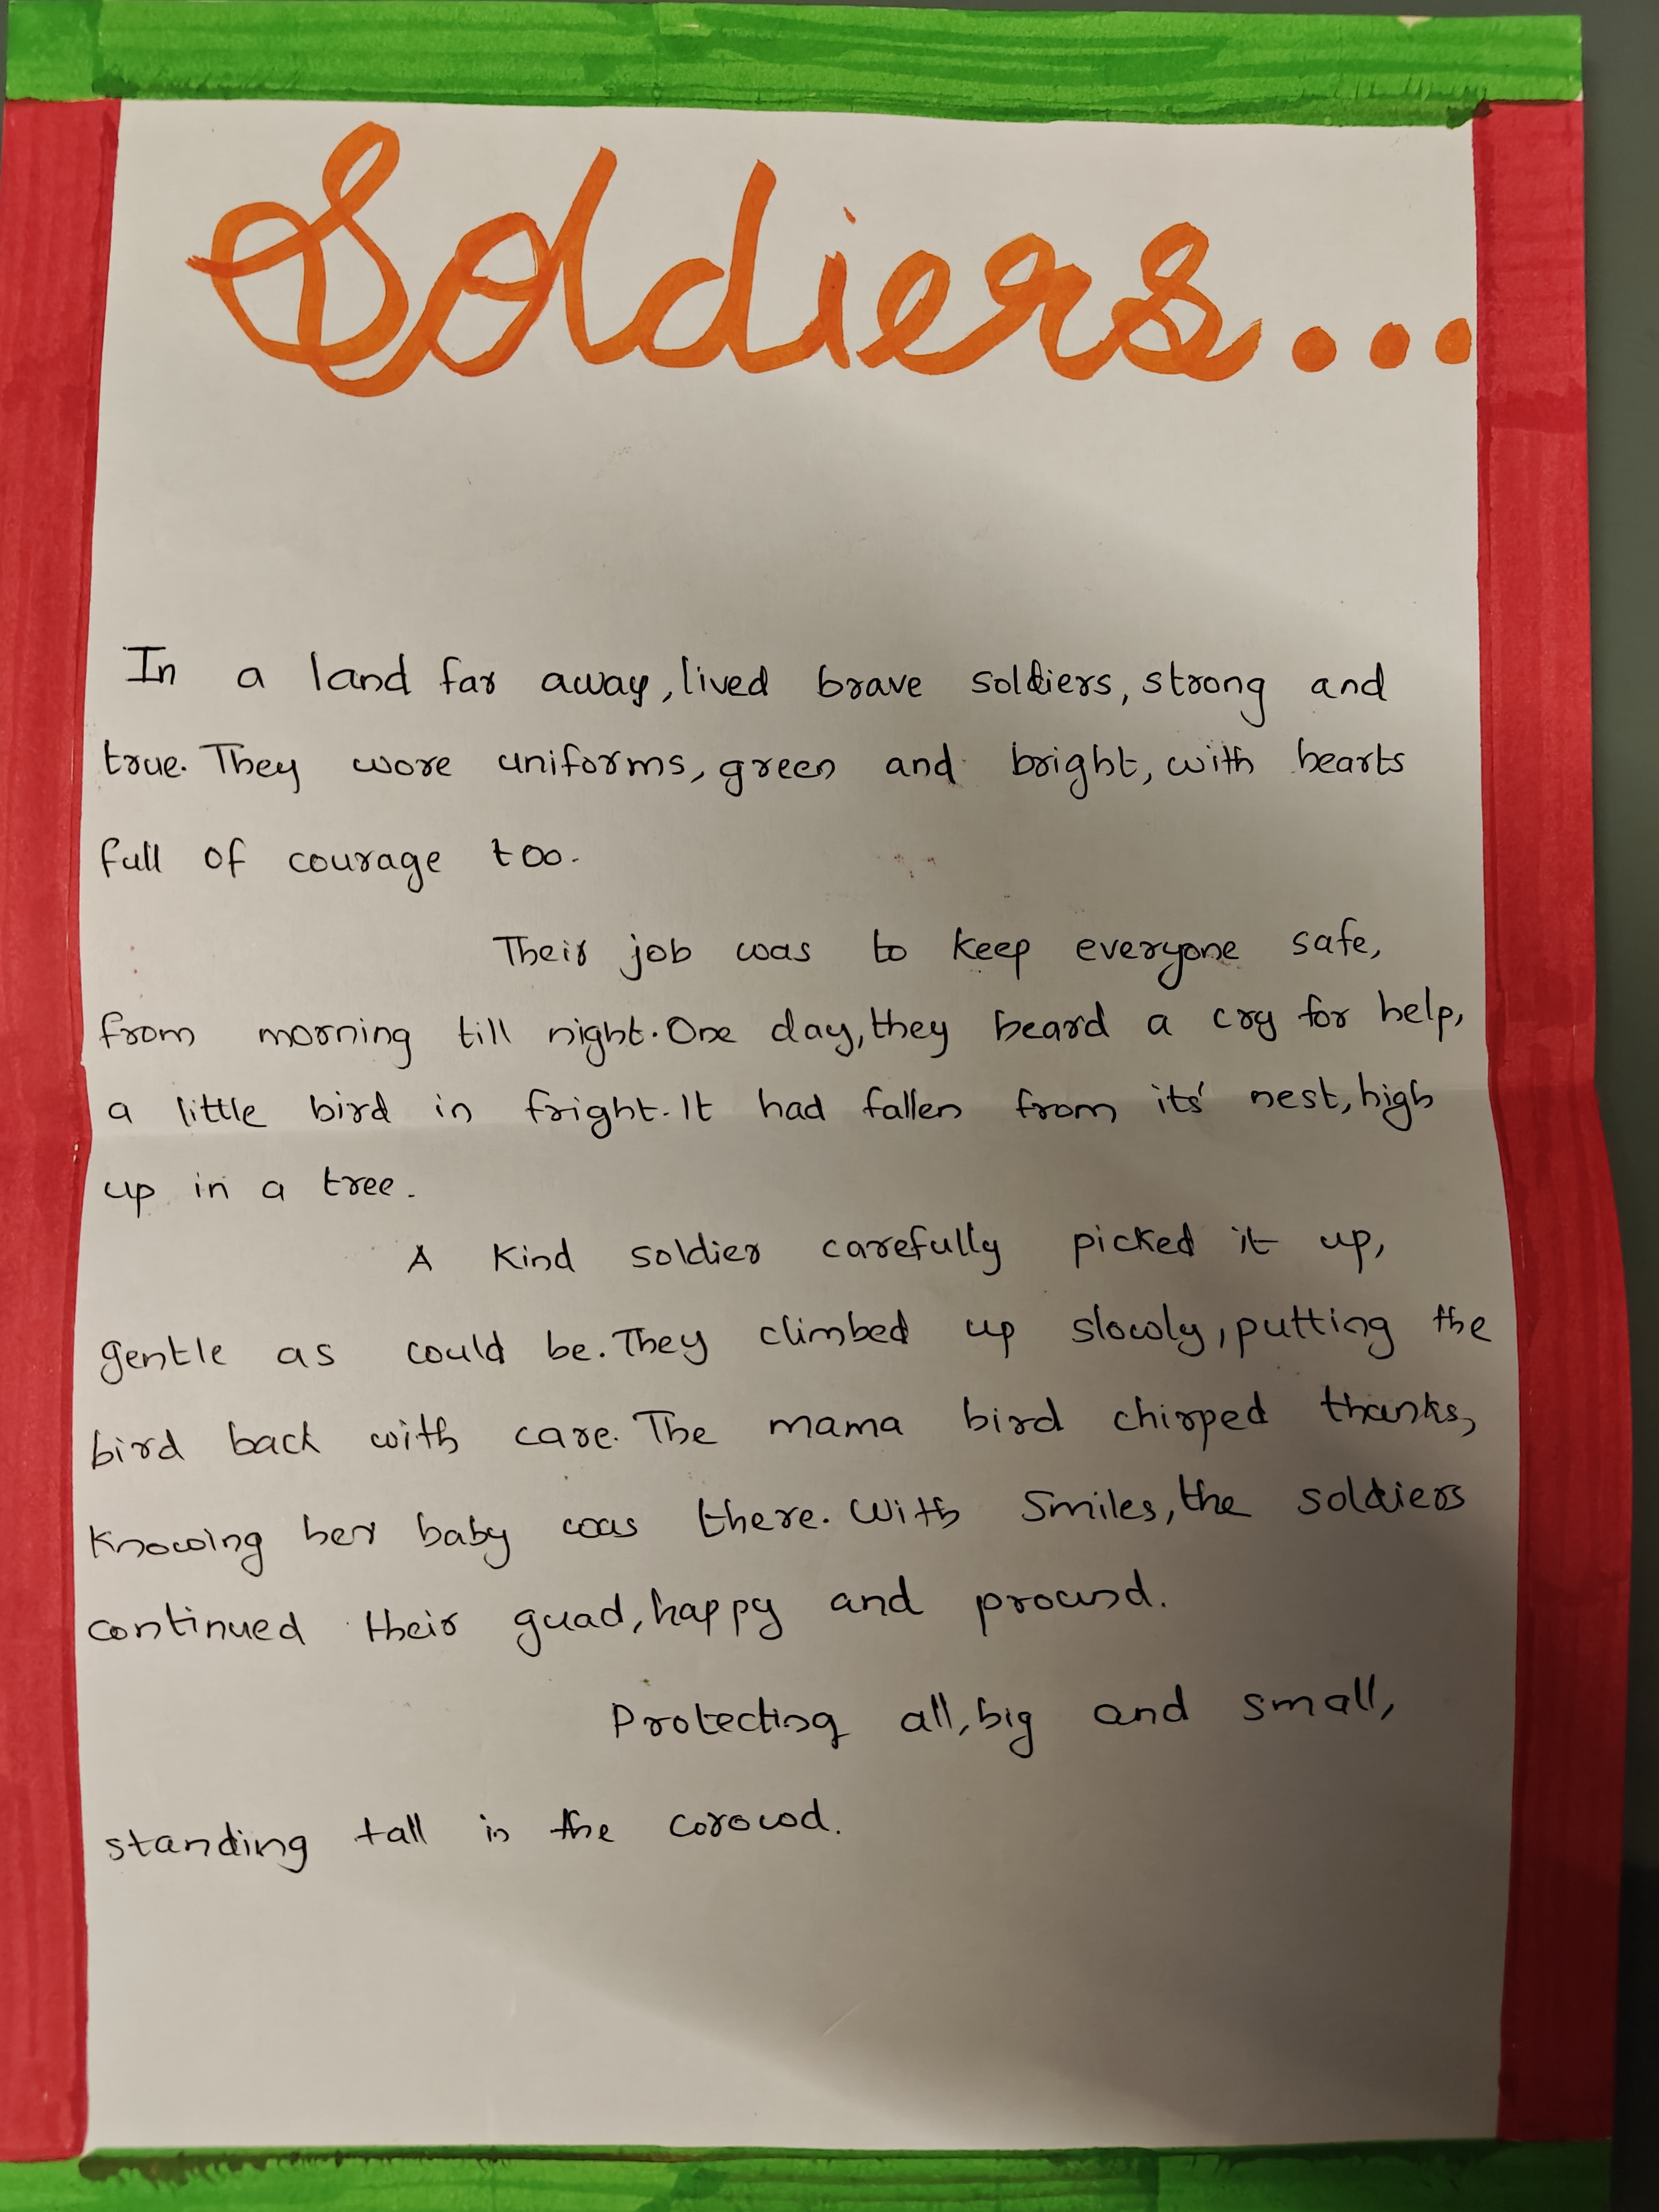 Soldiers...
In a land far away, lived brave soldiers, strong and
true. They wore uniforms, green and bright, with hearts
full of courage too.
Their job was to keep everyone safe,
from morning till night. One day, they heard a cry for help,
a little bird in fright. It had fallen from its' nest, high
up in a tree.
A kind soldier carefully picked it up,
gentle as could be. They climbed up slowly, putting the
bird back with care. The mama bird chirped thanks,
knowing her baby was there. With smiles, the soldiers
continued their guad, happy and pround.
Protecting all, big and small,
standing tall in the corowd.